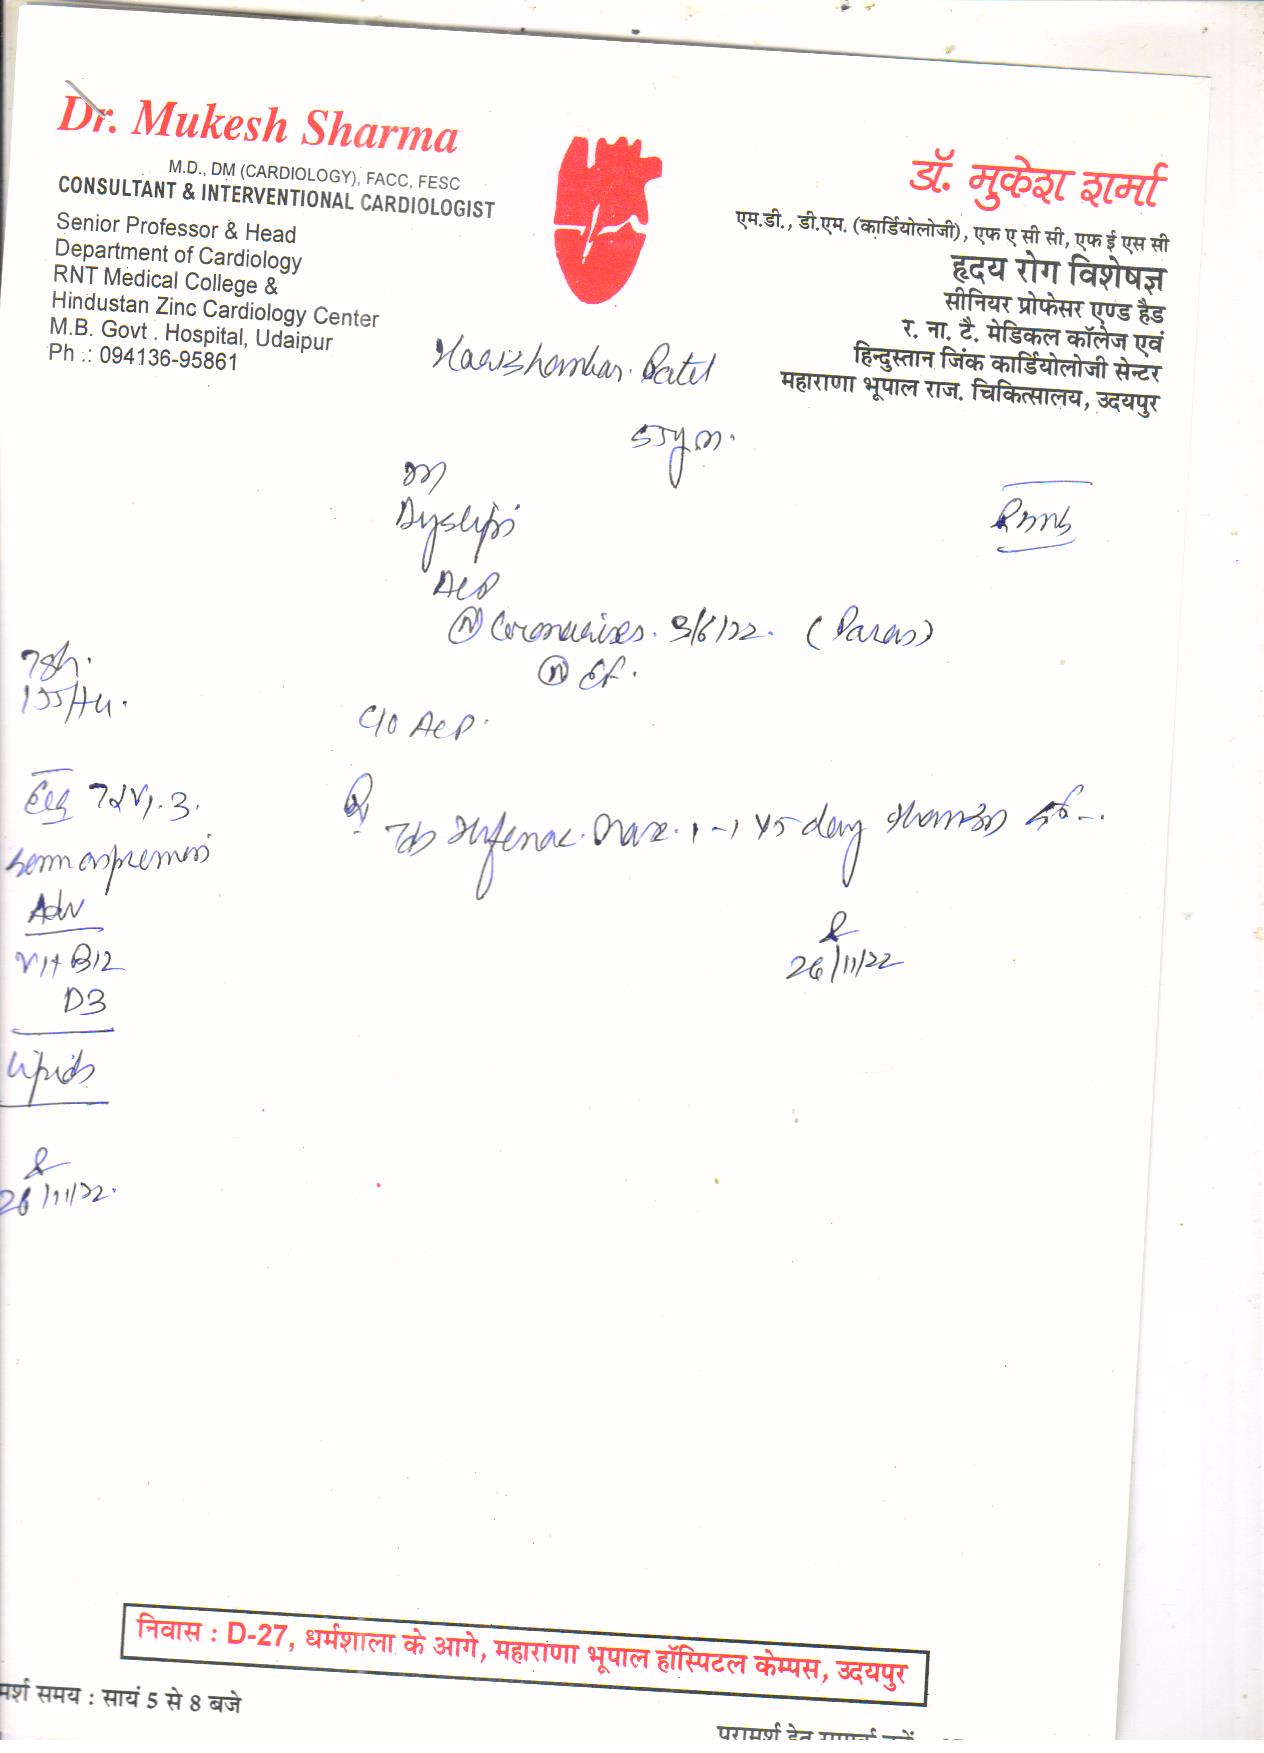 Dr. Mukesh Sharma
M.D., DM (CARDIOLOGY), FACC, FESC
CONSULTANT & INTERVENTIONAL CARDIOLOGIST
Senior Professor & Head
Department of Cardiology
RNT Medical College &
Hindustan Zinc Cardiology Center
M.B. Govt . Hospital, Udaipur
Ph .: 094136-95861
डॉ. मुकेश शर्मा
एम.डी., डी.एम. (कार्डियोलोजी), एफ ए सी सी, एफ ई एस सी
हृदय रोग विशेषज्ञ
सीनियर प्रोफेसर एण्ड हैड
र. ना. टै. मेडिकल कॉलेज एवं
हिन्दुस्तान जिंक कार्डियोलोजी सेन्टर
महाराणा भूपाल राज. चिकित्सालय, उदयपुर
Patel
Dyslipi
ACP
N Coronaries. 3/6/22. (Paras)
N EF.
C/O ACP.
Adv
Vit B12
D3
Lipids
26/11/22.
Max. 1-1 x 5 day
26/11/22
निवास : D-27, धर्मशाला के आगे, महाराणा भूपाल हॉस्पिटल केम्पस, उदयपुर
मर्श समय : सायं 5 से 8 बजे